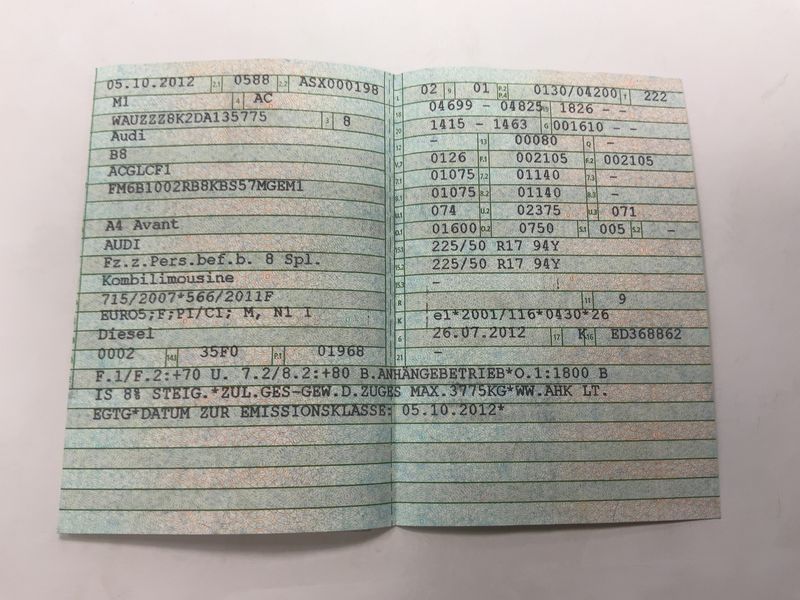 05.10.2012 2.1 0588 2.2 ASX000198
M1 4 AC
WAUZZZ8K2DA135775 3 8
Audi
B8
ACGLCF1
FM6B1002RB8KBS57MGEM1
A4 Avant
AUDI
Fz.z.Pers.bef.b. 8 Spl.
Kombilimousine
715/2007*566/2011F
EURO5;F;PI/CI; M, N1 I
Diesel
0002 14.1 35F0 P.1 01968
L 02 9 01 P.2 P.4 0130/04200 T 222
18 04699 - 04825 19 1826 - -
20 1415 - 1463 G 001610 - -
12 - 13 00080 Q -
V.7 0126 F.1 002105 F.2 002105
7.1 01075 7.2 01140 7.3 -
8.1 01075 8.2 01140 8.3 -
U.1 074 U.2 02375 U.3 071
O.1 01600 O.2 0750 S.1 005 S.2 -
15.1 225/50 R17 94Y
15.2 225/50 R17 94Y
15.3 -
R 11 9
K e1*2001/116*0430*26
6 26.07.2012 17 K 16 ED368862
21 -
F.1/F.2:+70 U. 7.2/8.2:+80 B.ANHÄNGEBETRIEB*O.1:1800 B
IS 8% STEIG.*ZUL.GES-GEW.D.ZUGES MAX.3775KG*WW.AHK LT.
EGTG*DATUM ZUR EMISSIONSKLASSE: 05.10.2012*